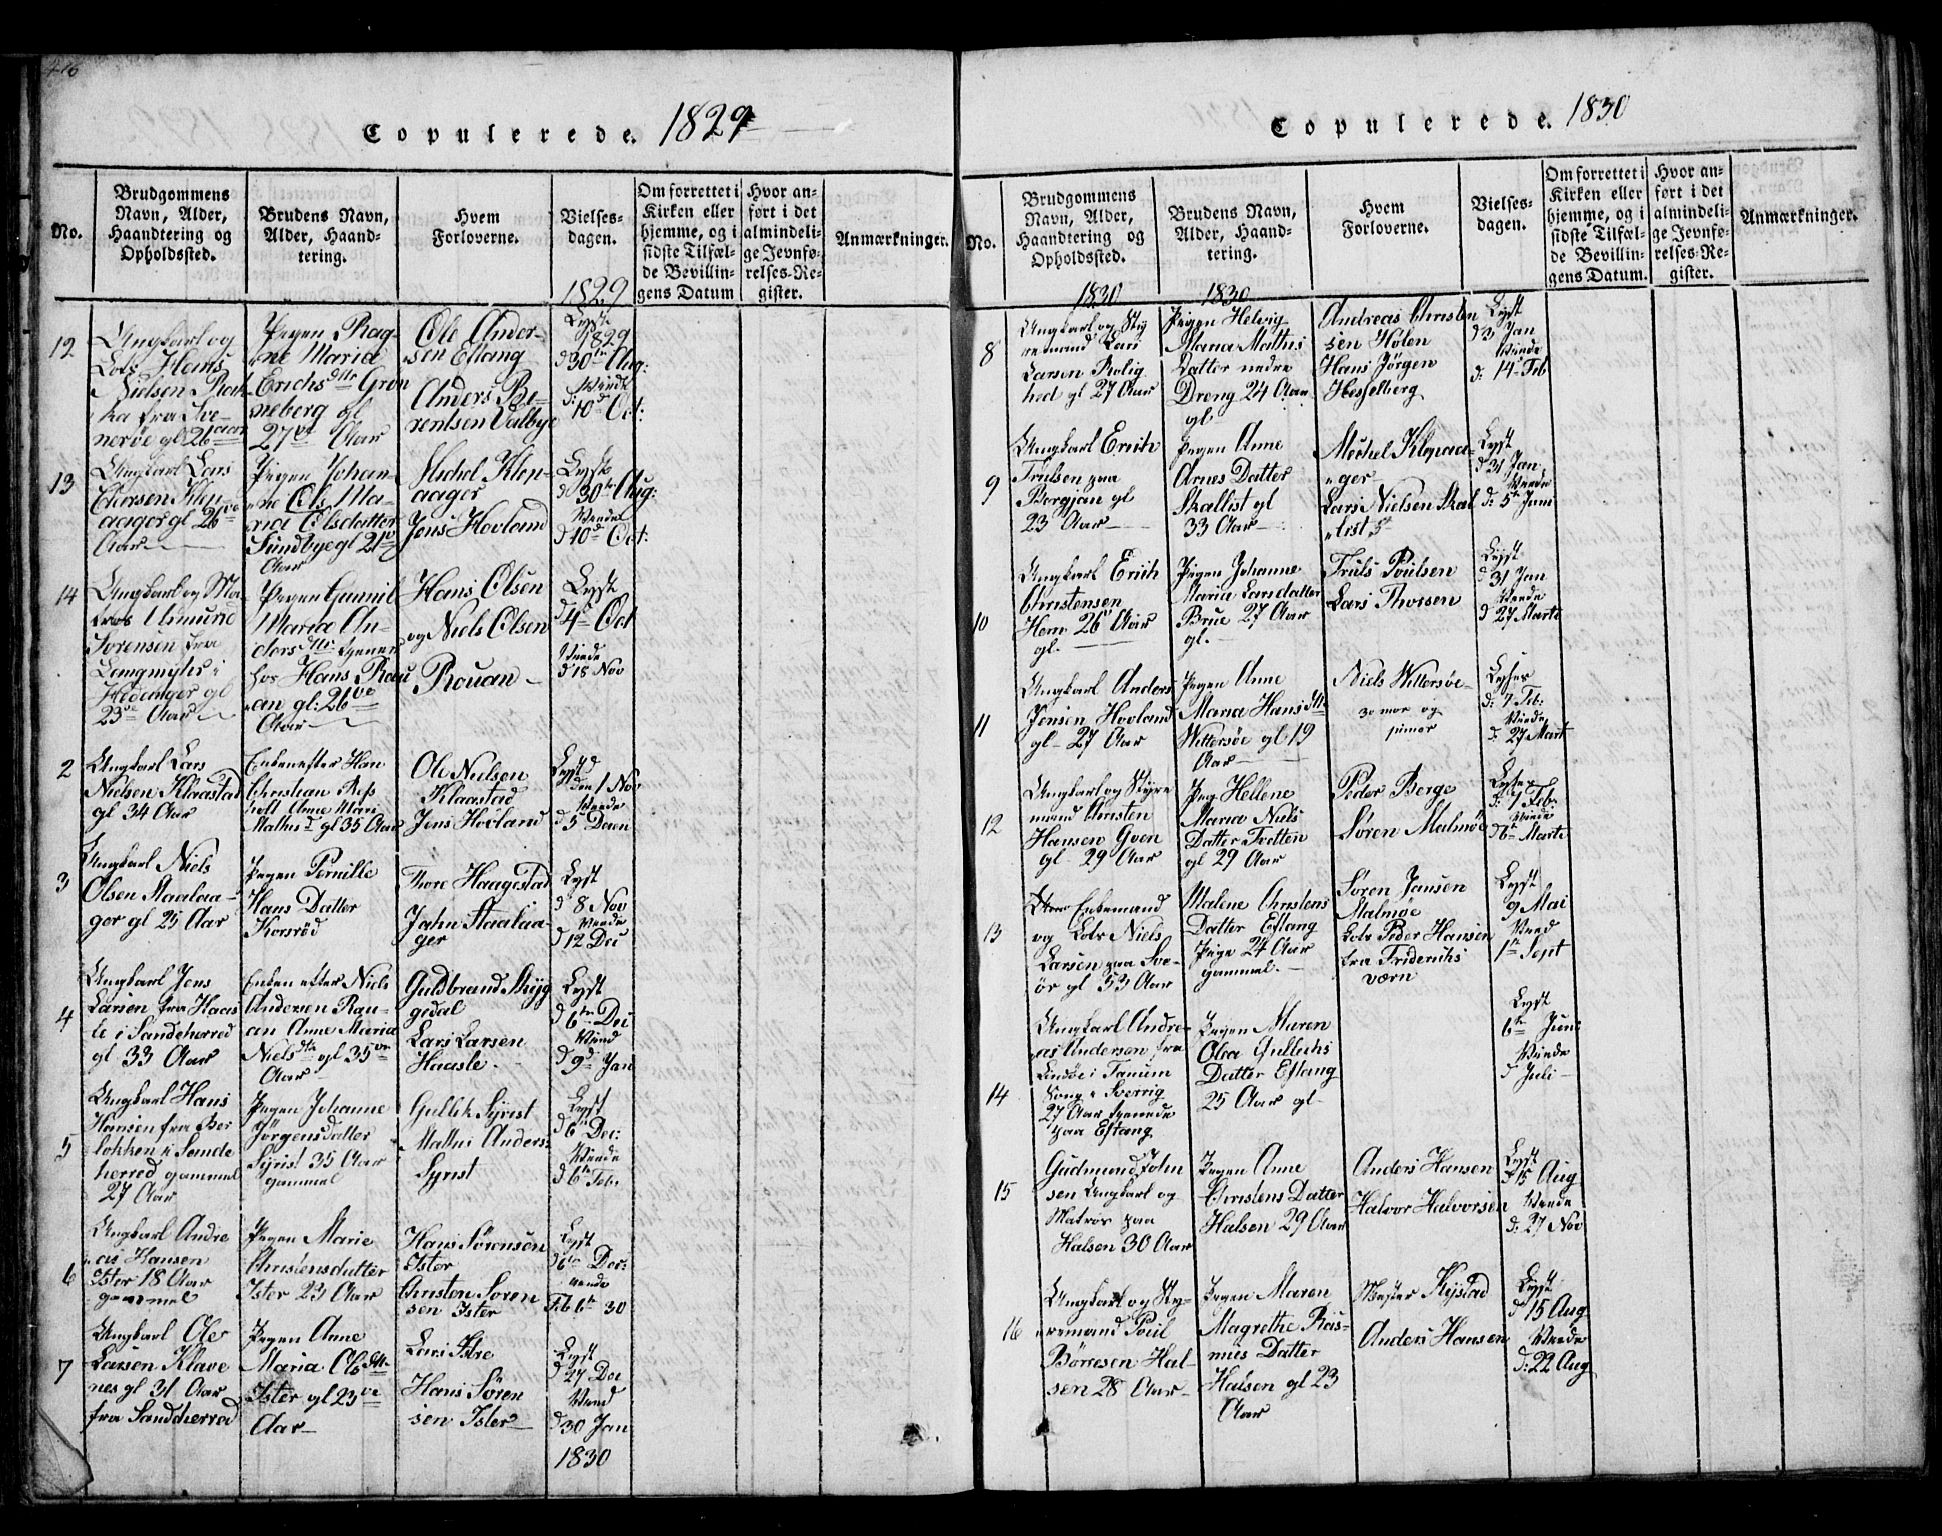 416
Copulerede. 1829
No.
Brudgommens
Navn, Alder,
Haandtering og
Opholdssted.
Brudens Navn,
Alder, Haand-
tering.
Hvem
Forloverne.
Vielses-
dagen.
Om forrettet i
Kirken eller
hjemme, og i
sidste Tilfæl-
de Bevillin-
gens Datum
Hvor an-
ført i det
almindeli-
ge Jevnfø-
relses-Re-
gister.
Anmærkninger.
1829
12
Ungkarl og
Lots Hans
Nielsen
fra Sve-
nerøe gl 26 aar
Pigen Rag-
ne Maria
Erichs dtr Gron
neberg gl
27 Aar
Ole Ander-
sen Eftang
Anders Be-
rentsen Valbye
Lyst
1829
d 30te Aug:
Viede
d: 10 Oct:
13
Ungkarl Lars
Klep-
aager gl 26
Aar
Pigen Johan-
ne Ols Ma-
ria Olsdatter
Sundbye gl 21
Aar
Michel Klep-
aager
Jens Hovland
Lyst
d 30te Aug:
Viede
d 10 Oct:
14
Ungkarl og Ma-
tros Asmund
Sorensen fra
Langmyhr i
Hedenger gl
23 Aar
Pigen Gunnil
Maria An-
ders dtr tjener
hos Hans Rou
an gl: 26
Aar
Hans Olsen
og Niels Olsen
Rouan
Lyst
d 4 Oct
Viede
d 18 Nov
2
Ungkarl Lars
Nielsen Klaastad
gl 34 Aar
Enken efter Han
Christian
Anne Mari
Mathis d gl 35 Aar
Ole Nielsen
Klaastad
Jens Hovland
Lyst
den 1 Nov
Viede
d 5 Decn
3
Ungkarl Niels
Olsen Staalaa-
ger gl 25 Aar
Pigen Pernille
Hans Datter
Korsröd
Thore Haagestad
Jahn Staalaa-
ger
Lyst
d 8 Nov
Viede
d 12 Dec
4
Ungkarl Jens
Larsen fra Haas
le i Sandeherred
gl 33 Aar
Enken efter Niels
Andersen Rau-
an Anne Maria
Niels dtr gl 35
Aar
Guldbrand Skyg
gedal
Lars Larsen
Haasle
Lyst
d 6te Dec
Viede
d 9 Jan
5
Ungkarl Hans
Hansen fra Ber
lokken i Sande
herred gammel
27 Aar
Pigen Johanne
Jörgensdatter
Syrist 35 Aar
gammel
Gullik Syrist
Mathis Anders:
Syrist
Lyst
d 6 Dec:
Viede
d 6te Feb:
6
Ungkarl Andre
as Hansen
Ister 18 Aar
gammel
Pigen Marie
Christensdatter
Ister 23 Aar
Hans Sörensen
Ister
Christen Sören
sen Ister
Lyst
d 6te Dec:
viede
Feb 6te 30
7
Ungkarl Ole
Larsen Klave
nes gl 31 Aar
fra Sandeherred
Pigen Anne
Maria Ols dtr
Ister gl 23
Aar
Lars Istre
Hans Sören
sen Ister
Lyst
d 27 Dec
Viede
d 30 Jan
1830
Copulerede. 1830
No.
Brudgommens
Navn, Alder,
Haandtering og
Opholdssted.
Brudens Navn,
Alder, Haand-
tering.
Hvem
Forloverne.
Vielses-
dagen.
Om forrettet i
Kirken eller
hjemme, og i
sidste Tilfæl-
de Bevillin-
gens Datum.
Hvor an-
ført i det
almindeli-
ge Jevnfø-
relses-Re-
gister.
Anmærkninger.
1830
1830
8
Ungkarl og Sty
remand Lars
Larsen Rolig
hed gl 27 Aar
Pigen Helvig
Maria Mathis
Datter nedre
Dreng 24 Aar
gl
Andreas Christen
sen Holen
Hans Jörgen
Hesselberg
Lyst
d 3 Jan
Viede
d: 14 Feb
9
Ungkarl Erich
Trulsen paa
Bergjan gl
23 Aar
Pigen Anne
Arnes Datter
Skallist gl
33 Aar
Mechel Klepaa-
ger
Lars Nielsen Skal
list
Lyst
d 31 Jan
Viede
d: 5te Juni
10
Ungkarl Erich
Christensen
Hem 26 Aar
gl.
Pigen Johanne
Maria Larsdatter
Brue 27 Aar
gl.
Truls Poulsen
Lars Thorsen
Lyst
d 31 Jan
Viede
d 27 Marti
11
Ungkarl Anders
Jensen Hovland
gl 27 Aar
Pigen Anne
Maria Hans dtr
Wittersöe gl 19
Aar
Niels Wittersöe
Lyser
d: 7 Feb:
Viede
d: 27 Mart
12
Ungkarl og Styre
mand Christen
Hansen Goen
gl 29 Aar
Pig Hellene
Maria Niels
Datter Tvetten
gl 29 Aar
Peder Berge
Sören Malmöe
Lyser
d: 7 Feb:
Viede
d 6te Marti
13
Enkemand
og Lots Niels
Larsen paa Sve-
ör gl 53 Aar
Malene Christens
Datter Eftang
Pige 24 Aar
gammel.
Sören Jansen
Malmöe
Lots Peder Hansen
fra Friderichs
værn
Lyst
9 Mai
Vied
1te Sept
14
Ungkarl Andre-
as Andersen fra
Lindöe i Tanum
Sogn i Sverrig
27 Aar tjenende
paa Eftang
Pigen Maren
Olea Gullichs
Datter Eftang
25 Aar gl
Lyst
6te Juni
Viede
d Juli
15
Gudmund John
sen Ungkarl og
Matros paa
Halsen 30 Aar
Pigen Anne
Christens Datter
Halsen 29 Aar
Anders Hansen
Halvor Halvorsen
Lyst
d 15 Aug
Viede
d: 27 Nov
16
Ungkarl og Sty-
remand Poul
Börresen Hal-
sen 28 Aar
Pigen Maren
Magrethe Ras-
mus Datter
Halsen gl 23
Aar
Mester Kystad
Anders Hansen
Lyst
d 15 Aug
Viede
d: 22 Aug